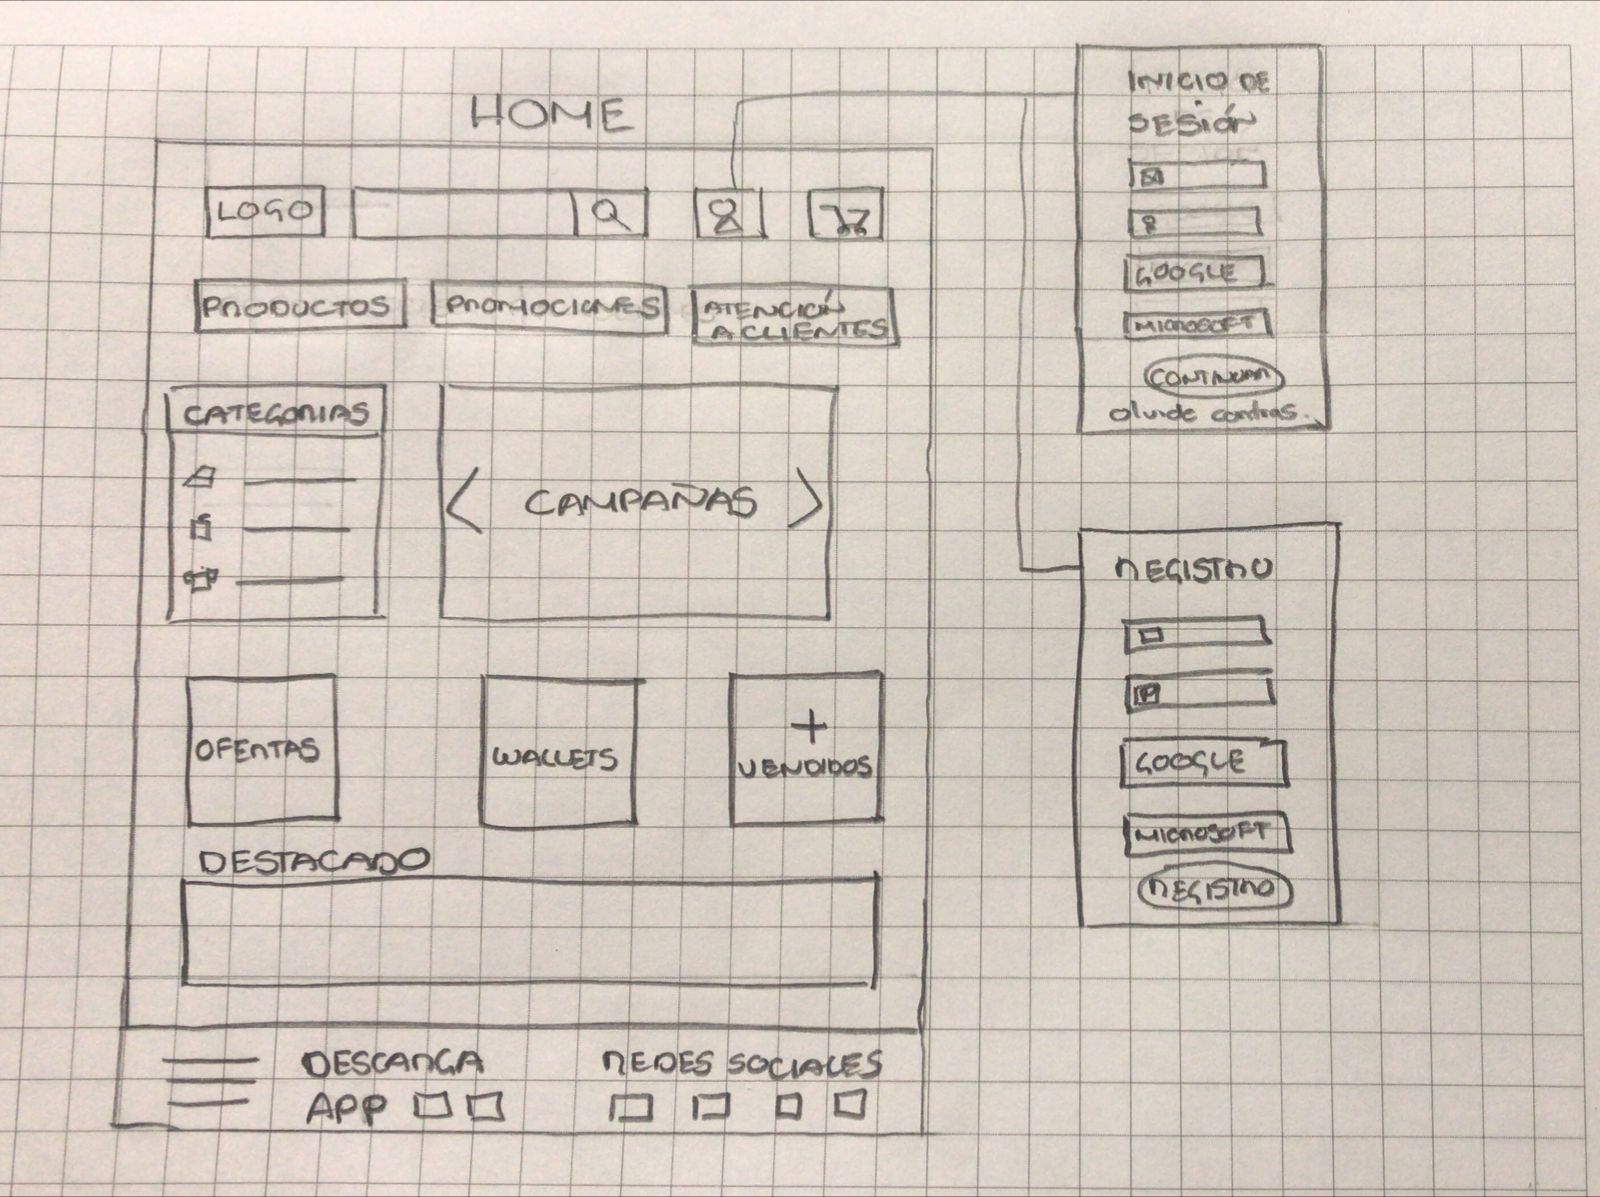 HOME
LOGO
PRODUCTOS
PROMOCIONES
ATENCIÓN
A CLIENTES
CATEGORIAS
CAMPAÑAS
OFERTAS
WALLETS
+
VENDIDOS
DESTACADO
DESCARGA
APP
REDES SOCIALES
INICIO DE
SESIÓN
GOOGLE
MICROSOFT
CONTINUAR
olvide contras.
REGISTRO
GOOGLE
MICROSOFT
REGISTRO